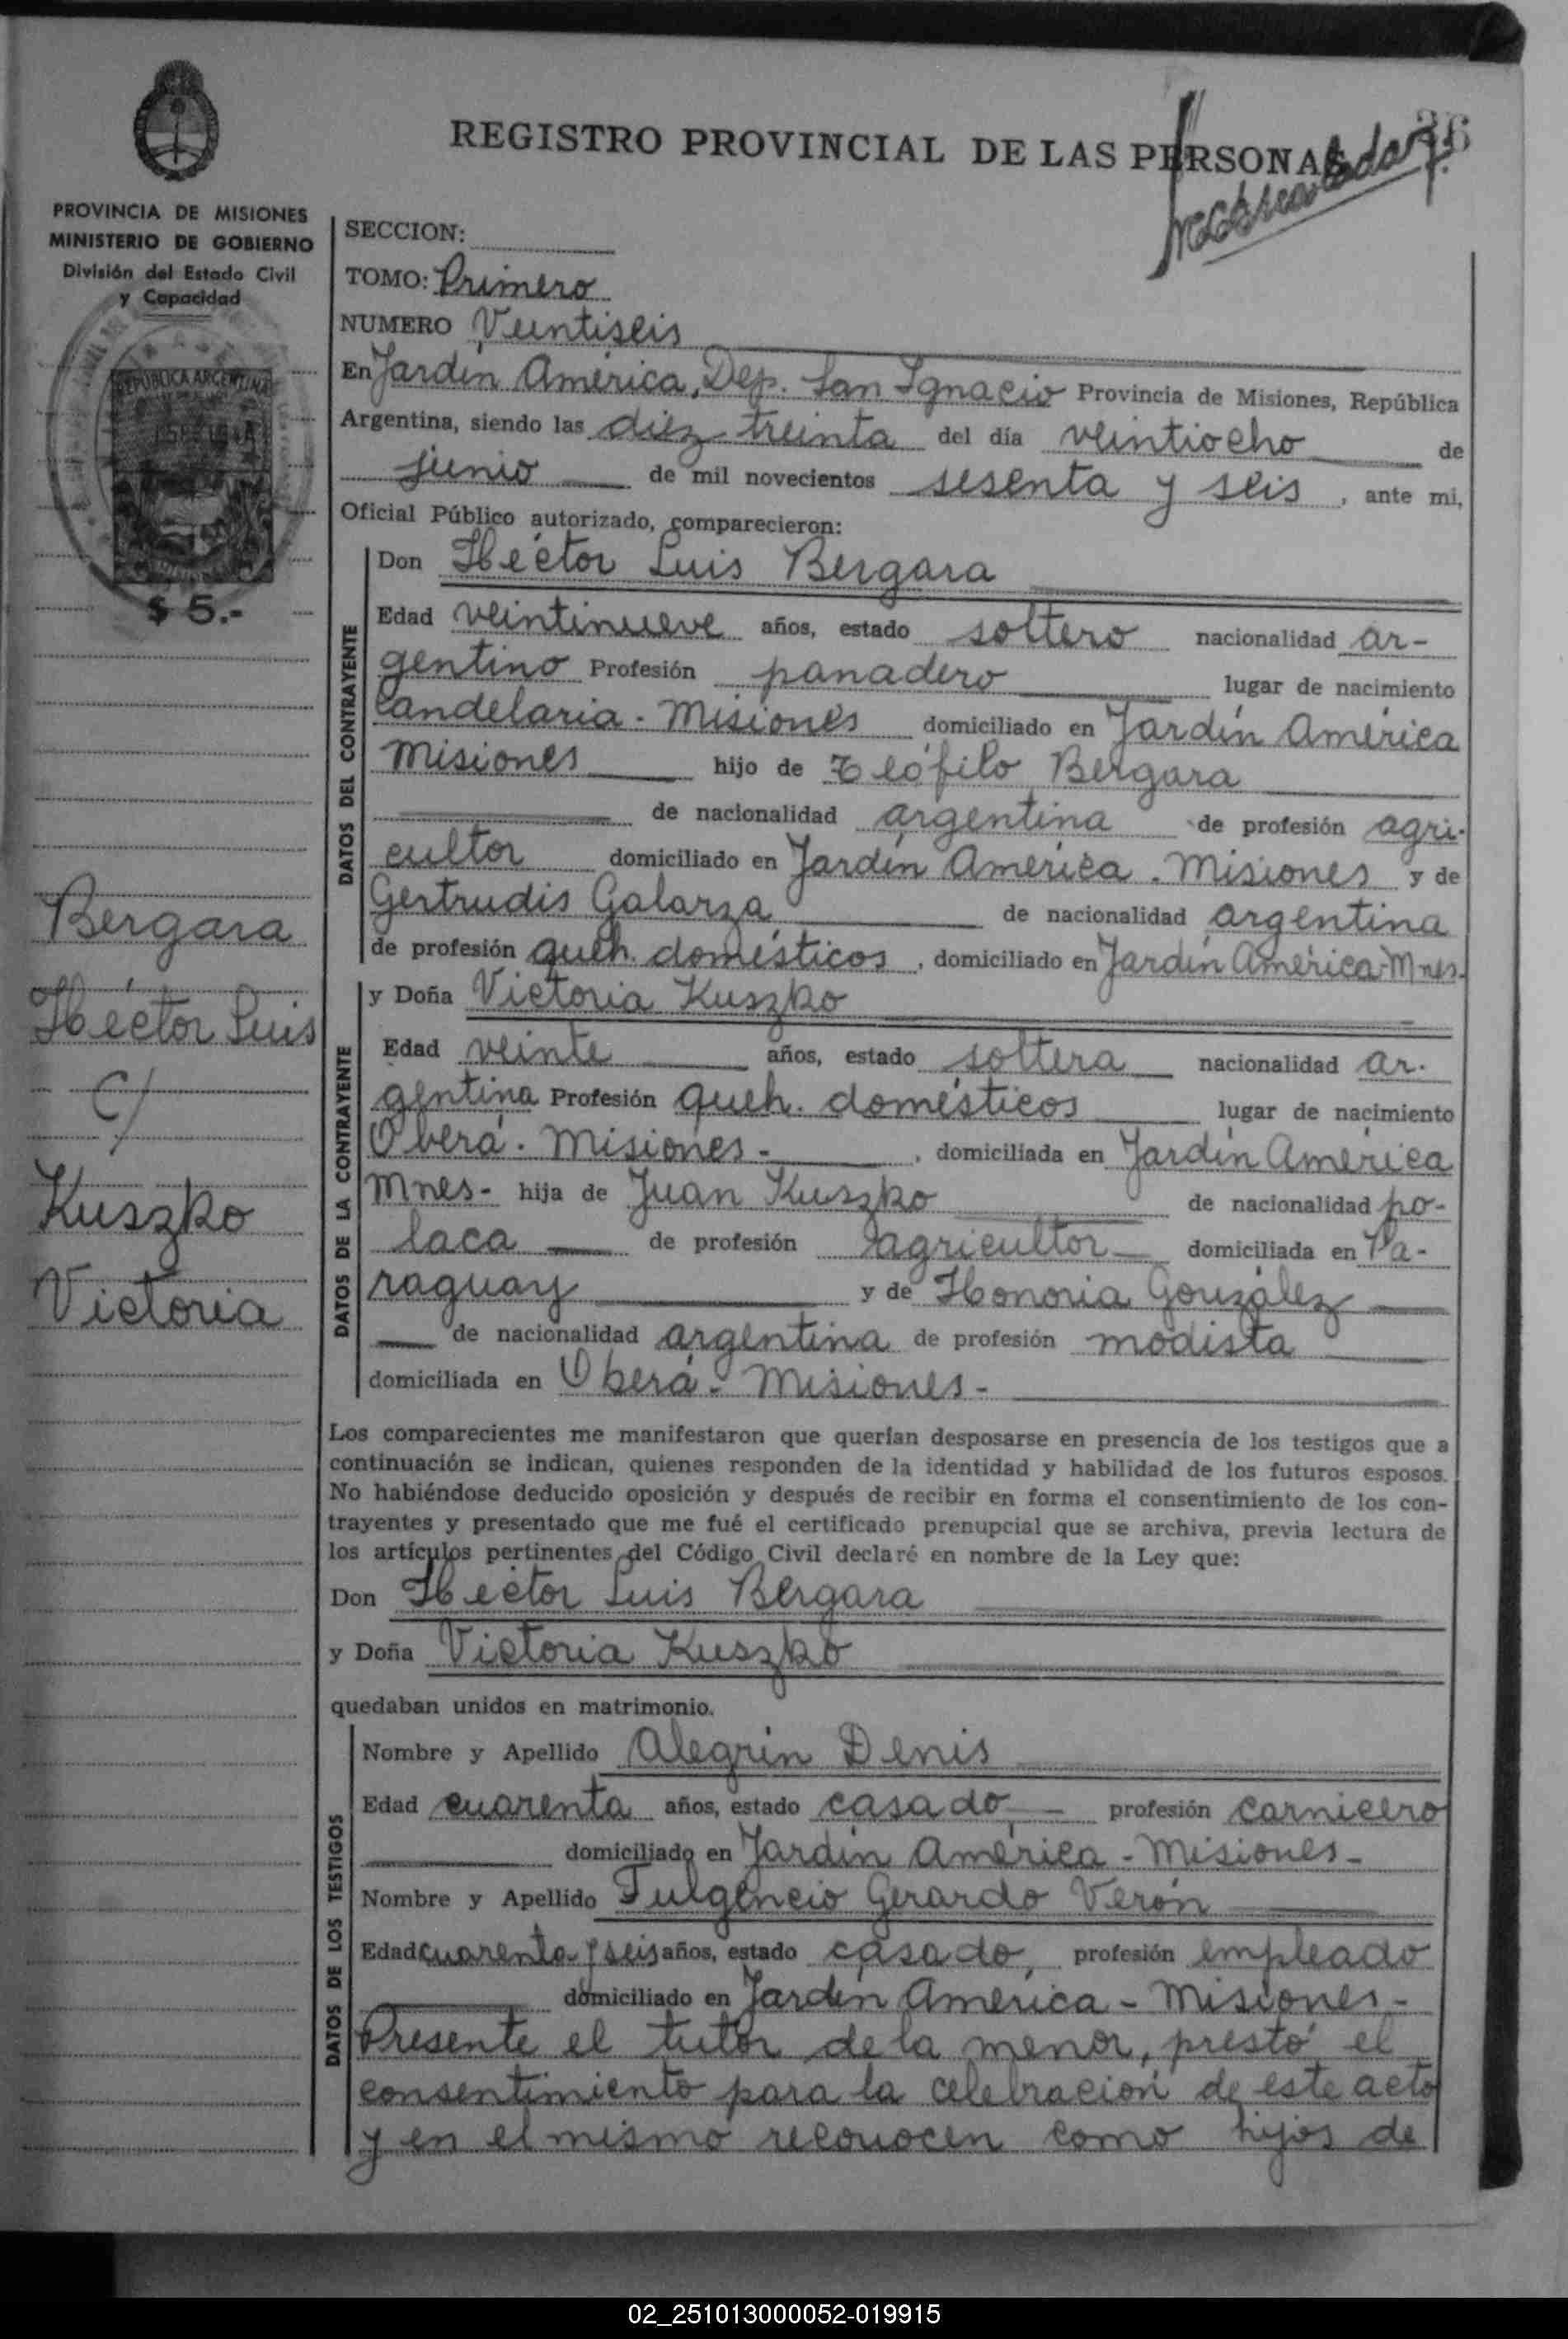 26
REGISTRO PROVINCIAL DE LAS PERSONAS
PROVINCIA DE MISIONES
MINISTERIO DE GOBIERNO
División del Estado Civil
y Capacidad
REPUBLICA ARGENTINA
$ 5.-
Bergara
Héctor Luis
c/
Kuszko
Victoria
SECCION:
TOMO: Primero
NUMERO Veintiseis
En Jardín América, Dep. San Ignacio Provincia de Misiones, República
Argentina, siendo las diez treinta del día veintiocho de
junio de mil novecientos sesenta y seis, ante mi,
Oficial Público autorizado, comparecieron:
DATOS DEL CONTRAYENTE
Don Héctor Luis Bergara
Edad veintinueve años, estado soltero nacionalidad ar-
gentino Profesión panadero lugar de nacimiento
Candelaria - Misiones domiciliado en Jardín América
Misiones hijo de Teófilo Bergara
de nacionalidad argentina de profesión agri-
cultor domiciliado en Jardín América - Misiones y de
Gertrudis Galarza de nacionalidad argentina
de profesión queh. domésticos, domiciliado en Jardín América Mnes.
DATOS DE LA CONTRAYENTE
y Doña Victoria Kuszko
Edad veinte años, estado soltera nacionalidad ar-
gentina Profesión queh. domésticos lugar de nacimiento
Oberá - Misiones -, domiciliada en Jardín América
Mnes- hija de Juan Kuszko de nacionalidad po-
laca de profesión agricultor domiciliada en Pa-
raguay y de Honoria González
de nacionalidad argentina de profesión modista
domiciliada en Oberá - Misiones -
Los comparecientes me manifestaron que querían desposarse en presencia de los testigos que a
continuación se indican, quienes responden de la identidad y habilidad de los futuros esposos.
No habiéndose deducido oposición y después de recibir en forma el consentimiento de los con-
trayentes y presentado que me fué el certificado prenupcial que se archiva, previa lectura de
los artículos pertinentes del Código Civil declaré en nombre de la Ley que:
Don Héctor Luis Bergara
y Doña Victoria Kuszko
quedaban unidos en matrimonio.
DATOS DE LOS TESTIGOS
Nombre y Apellido Alegrin Denis
Edad cuarenta años, estado casado profesión carnicero
domiciliado en Jardín América - Misiones -
Nombre y Apellido Fulgencio Gerardo Verón
Edad cuarenta y seis años, estado casado, profesión empleado
domiciliado en Jardín América - Misiones -
Presente el tutor de la menor, prestó el
consentimiento para la celebración de este acto
y en el mismo reconocen como hijos de
02_251013000052-019915